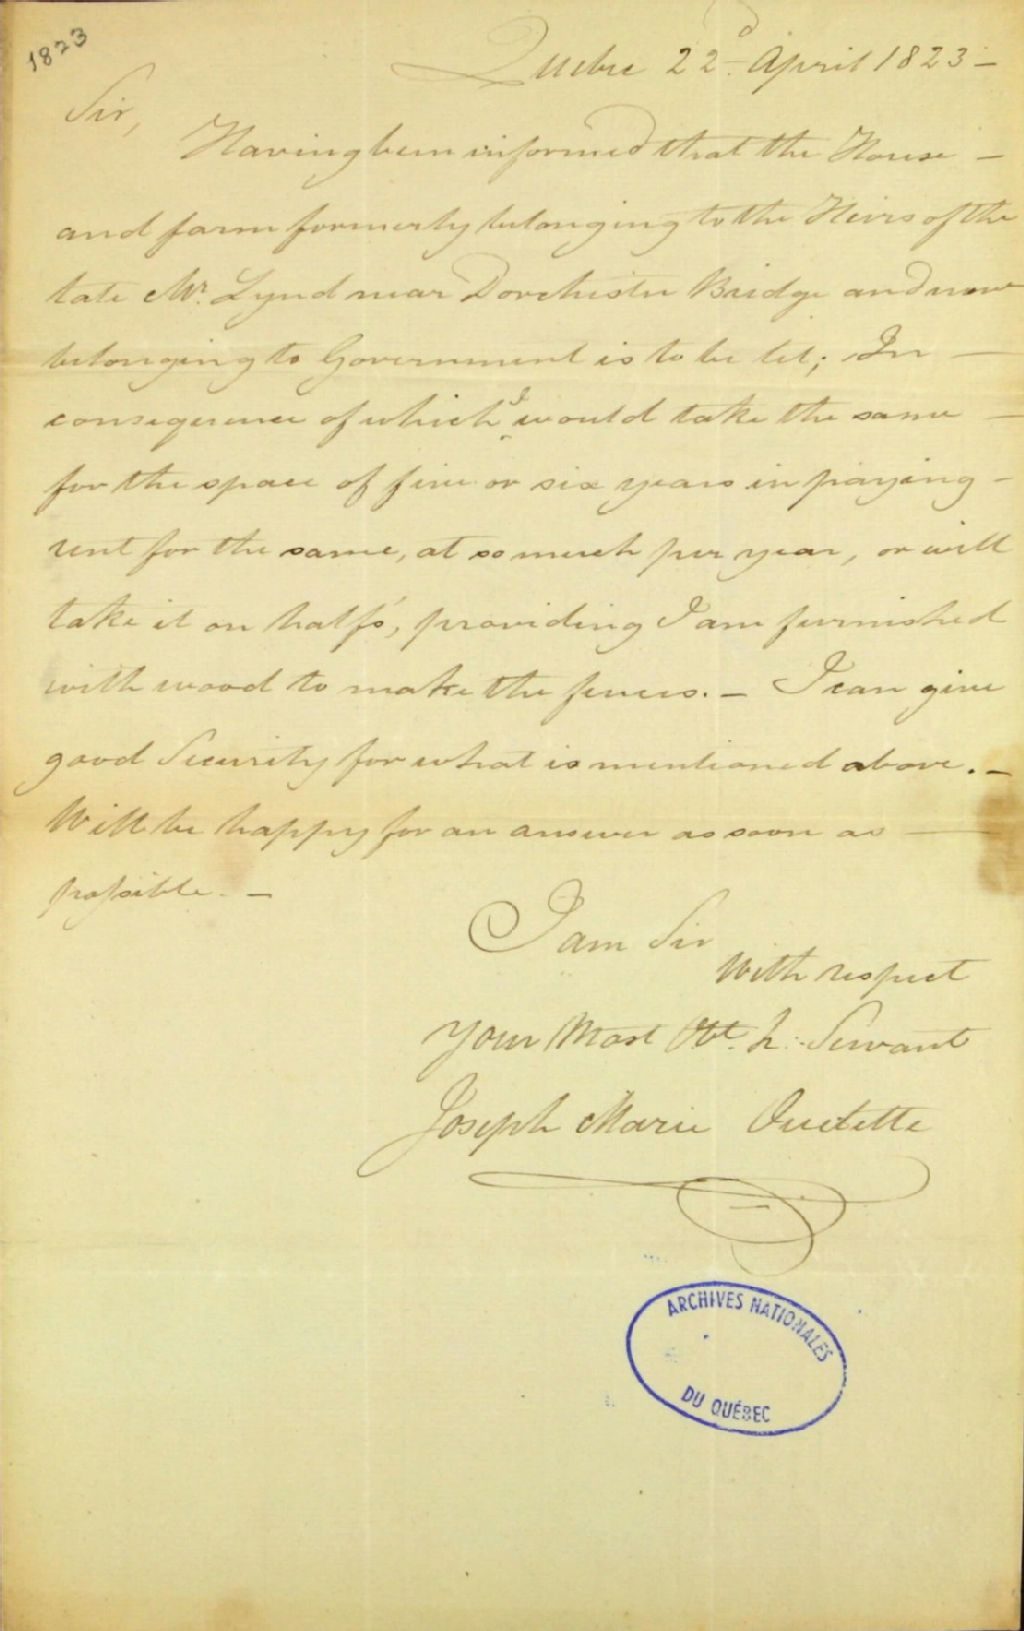 1823
Quebec 22d. April 1823 –
Sir,
Having been informed that the House –
and farm formerly belonging to the Heirs of the
late Mr. Lynd near Dorchester Bridge and now
belonging to Government is to be let; In —
consequence of which I would take the same —
for the space of five or six years in paying –
rent for the same, at so much per year, or will
take it on half's, providing I am furnished
with wood to make the fences. – I can give
good Security for what is mentioned above. –
Will be happy for an answer as soon as —
possible. –
I am Sir
With respect
Your Most Obt. h. Servant
Joseph Marie Ouelette
ARCHIVES NATIONALES
DU QUÉBEC